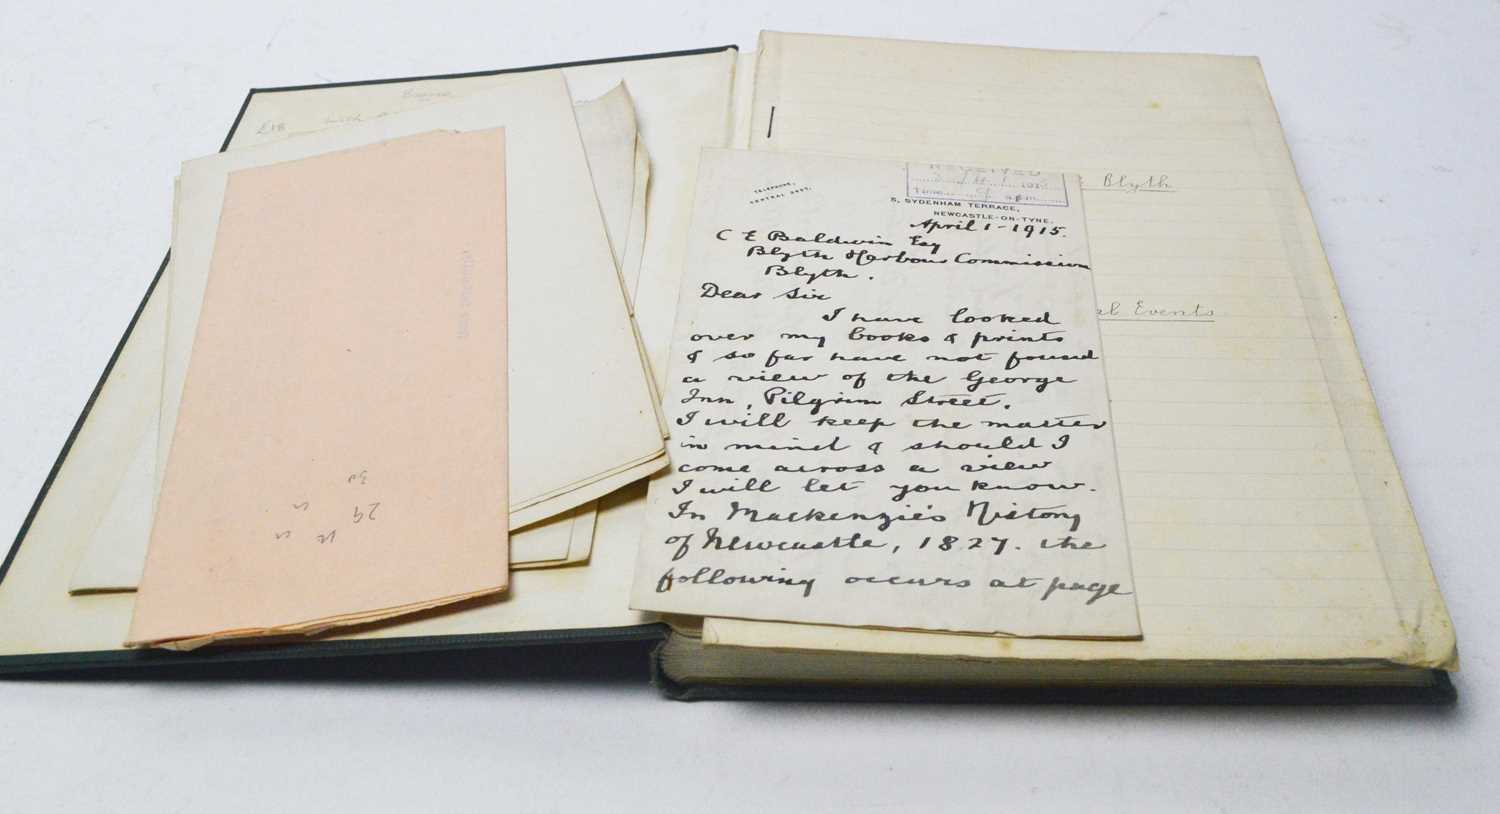 £18
TELEPHONE,
CENTRAL
RECEIVED
1915
Time
5, SYDENHAM TERRACE,
NEWCASTLE-ON-TYNE.
April 1 - 1915.
C E Baldwin Esq
Blyth Harbour Commission
Blyth.
Dear Sir
I have looked
over my books & prints
& so far have not found
a view of the George
Inn, Pilgrim Street.
I will keep the matter
in mind & should I
come across a view
I will let you know.
In Mackenzie's History
of Newcastle, 1827. the
following occurs at page
Blyth
al Events
29